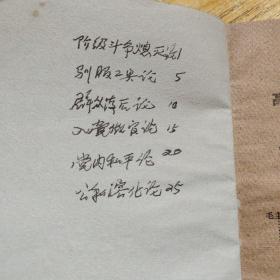 阶级斗争熄灭论 1
驯服工具论 5
群众落后论 10
入党做官论 15
党内和平论 20
公私溶化论 25